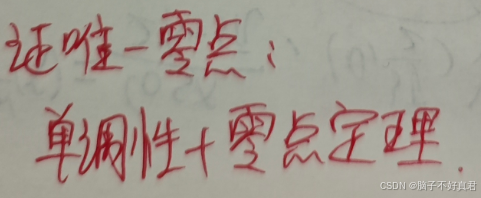 证唯一零点：
单调性+零点定理.
CSDN @脑子不好真君